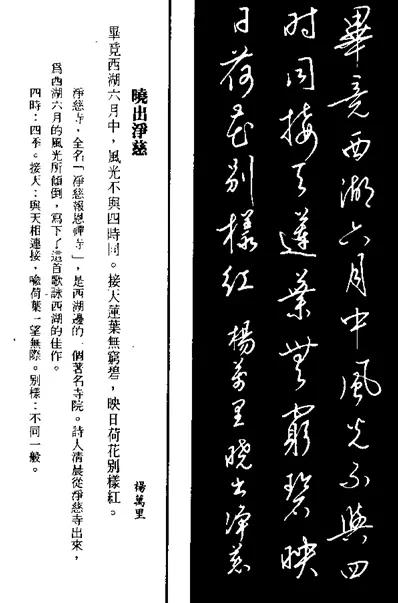 畢竟西湖六月中風光不與四
时同接天蓮葉無窮碧映
日荷花别樣红 楊萬里曉出净慈
曉出淨慈 楊萬里
畢竟西湖六月中，風光不與四時同。接天蓮葉無窮碧，映日荷花別樣紅。
淨慈寺，全名「淨慈報恩禪寺」，是西湖邊的一個著名寺院。詩人清晨從淨慈寺出來，
爲西湖六月的風光所傾倒，寫下了這首歌詠西湖的佳作。
四時：四季。接天：與天相連接，喻荷葉一望無際。別樣：不同一般。